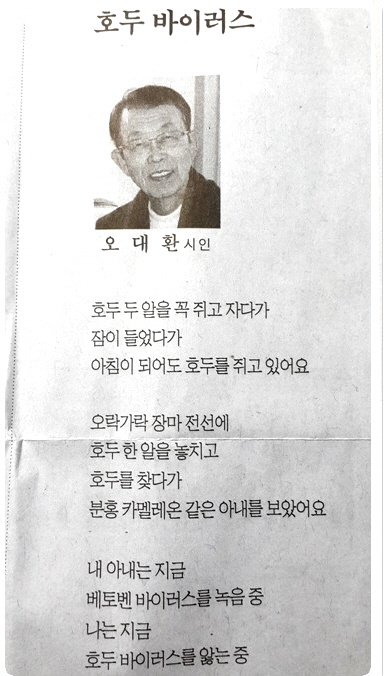 호두 바이러스
오 대 환 시인
호두 두 알을 꼭 쥐고 자다가
잠이 들었다가
아침이 되어도 호두를 쥐고 있어요
오락가락 장마 전선에
호두 한 알을 놓치고
호두를 찾다가
분홍 카멜레온 같은 아내를 보았어요
내 아내는 지금
베토벤 바이러스를 녹음 중
나는 지금
호두 바이러스를 앓는 중